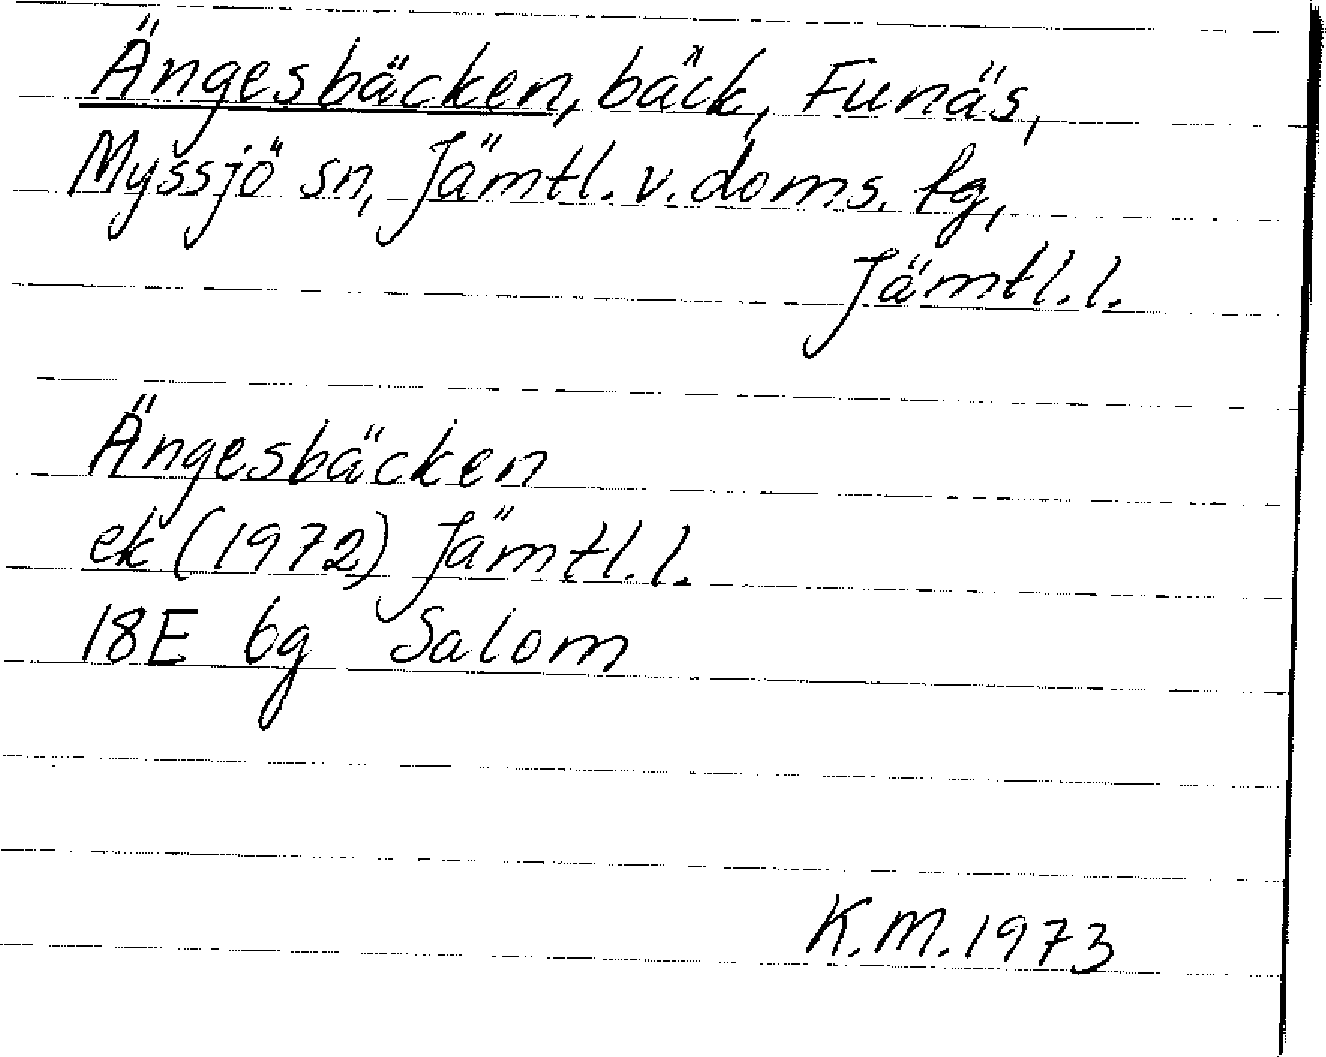 Ängesbäcken, bäck, Funäs,
Myssjö sn, Jämtl. v. doms. lg,
Jämtl. l.
Ängesbäcken
ek (1972) Jämtl. l.
18E 6g Salom
K.M. 1973